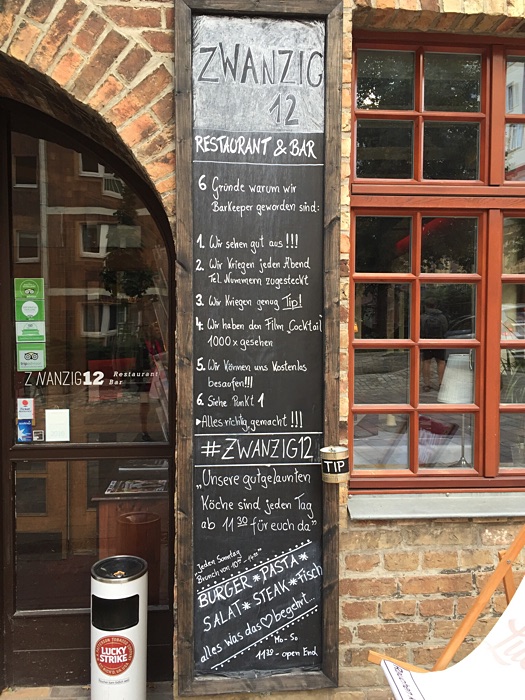 ZWANZIG
12
RESTAURANT & BAR
6 Gründe warum wir
BarKeeper geworden sind:
1. Wir sehen gut aus!!!
2. Wir Kriegen jeden Abend
Tel. Nummern zugesteckt
3. Wir Kriegen genug Tip!
4. Wir haben den Film „Cocktail"
1000 x gesehen
5. Wir Können uns Kostenlos
besaufen!!!
6. Siehe Punkt 1
▸Alles richtig gemacht!!!
#ZWANZIG12
„Unsere gutgelaunten
Köche sind jeden Tag
ab 11 30 für euch da"
Jeden Sonntag
Brunch von
BURGER * PASTA *
SALAT * STEAK * Fisch
alles was das ♡ begehrt...
Mo-So
11 30 - open End
TIP
ZWANZIG12 Restaurant
Bar
LUCKY
STRIKE